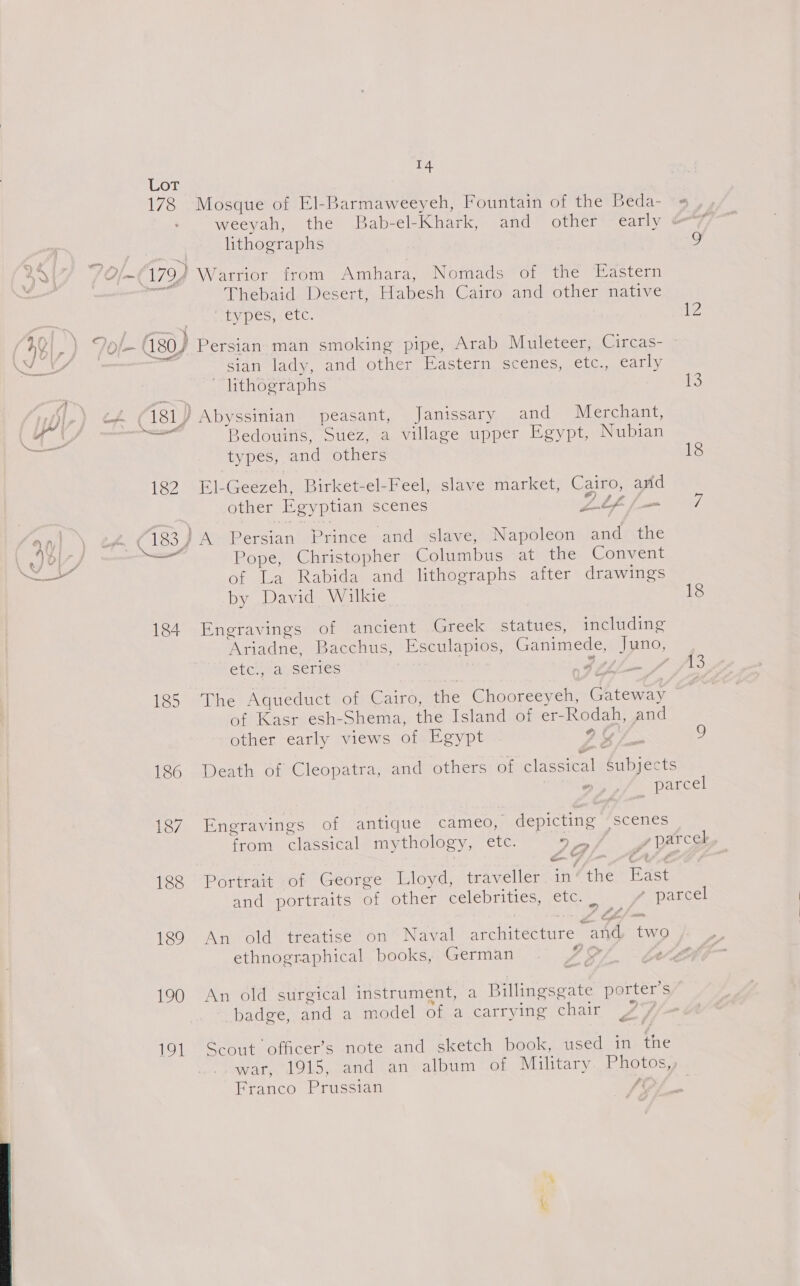 14
LOT
178 Mosque of El-Barmaweeyeh, Fountain of the Beda-
weeyah, the Bab-el-Khark, and other early
lithographs 9
179 Warrior from Amhara, Nomads of the Eastern
Thebaid Desert, Habesh Cairo and other native
types, etc. 12
180 Persian man smoking pipe, Arab Muleteer, Circas-
sian lady, and other Eastern scenes, etc., early
lithographs 13
181 Abyssinian peasant, Janissary and Merchant,
Bedouins, Suez, a village upper Egypt, Nubian
types, and others 18
182 El-Geezeh, Birket-el-Feel, slave market, Cairo, and
other Egyptian scenes 7
183 A Persian Prince and slave, Napoleon and the
Pope, Christopher Columbus at the Convent
of La Rabida and lithographs after drawings
by David Wilkie 18
184 Engravings of ancient Greek statues, including
Ariadne, Bacchus, Esculapios, Ganimede, Juno,
etc., a series 13
185 The Aqueduct of Cairo, the Chooreeyeh, Gateway
of Kasr esh-Shema, the Island of er-Rodah, and
other early views of Egypt 9
186 Death of Cleopatra, and others of classical subjects
parcel
187 Engravings of antique cameo, depicting scenes
from classical mythology, etc. parcel
188 Portrait of George Lloyd, traveller in the East
and portraits of other celebrities, etc. parcel
189 An old treatise on Naval architecture and two
ethnographical books, German
190 An old surgical instrument, a Billingsgate porter's
badge, and a model of a carrying chair
191 Scout officer's note and sketch book, used in the
war, 1915, and an album of Military Photos,
Franco Prussian